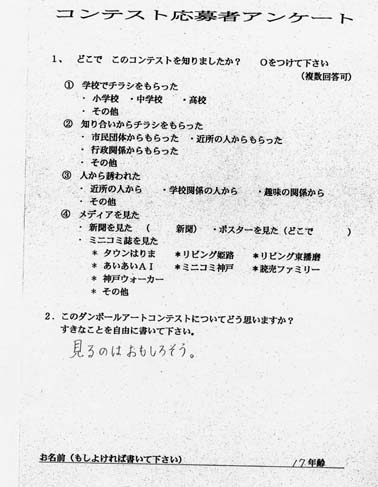 コンテスト応募者アンケート
1、 どこで このコンテストを知りましたか? Oをつけて下さい
(複数回答可)
① 学校でチラシをもらった
・小学校 ・中学校 ・高校
・その他
② 知り合いからチラシをもらった
・市民団体からもらった ・近所の人からもらった
・行政関係からもらった
・その他
③ 人から誘われた
・近所の人から ・学校関係の人から ・趣味の関係から
・その他
④ メディアを見た
・新聞を見た ( 新聞) ・ポスターを見た(どこで )
・ミニコミ誌を見た
*タウンはりま *リビング姫路 *リビング東播磨
*あいあいAI *ミニコミ神戸 *読売ファミリー
*神戸ウォーカー
*その他
2．このダンボールアートコンテストについてどう思いますか?
すきなことを自由に書いて下さい。
見るのはおもしろそう。
お名前(もしよければ書いて下さい) 17年齢